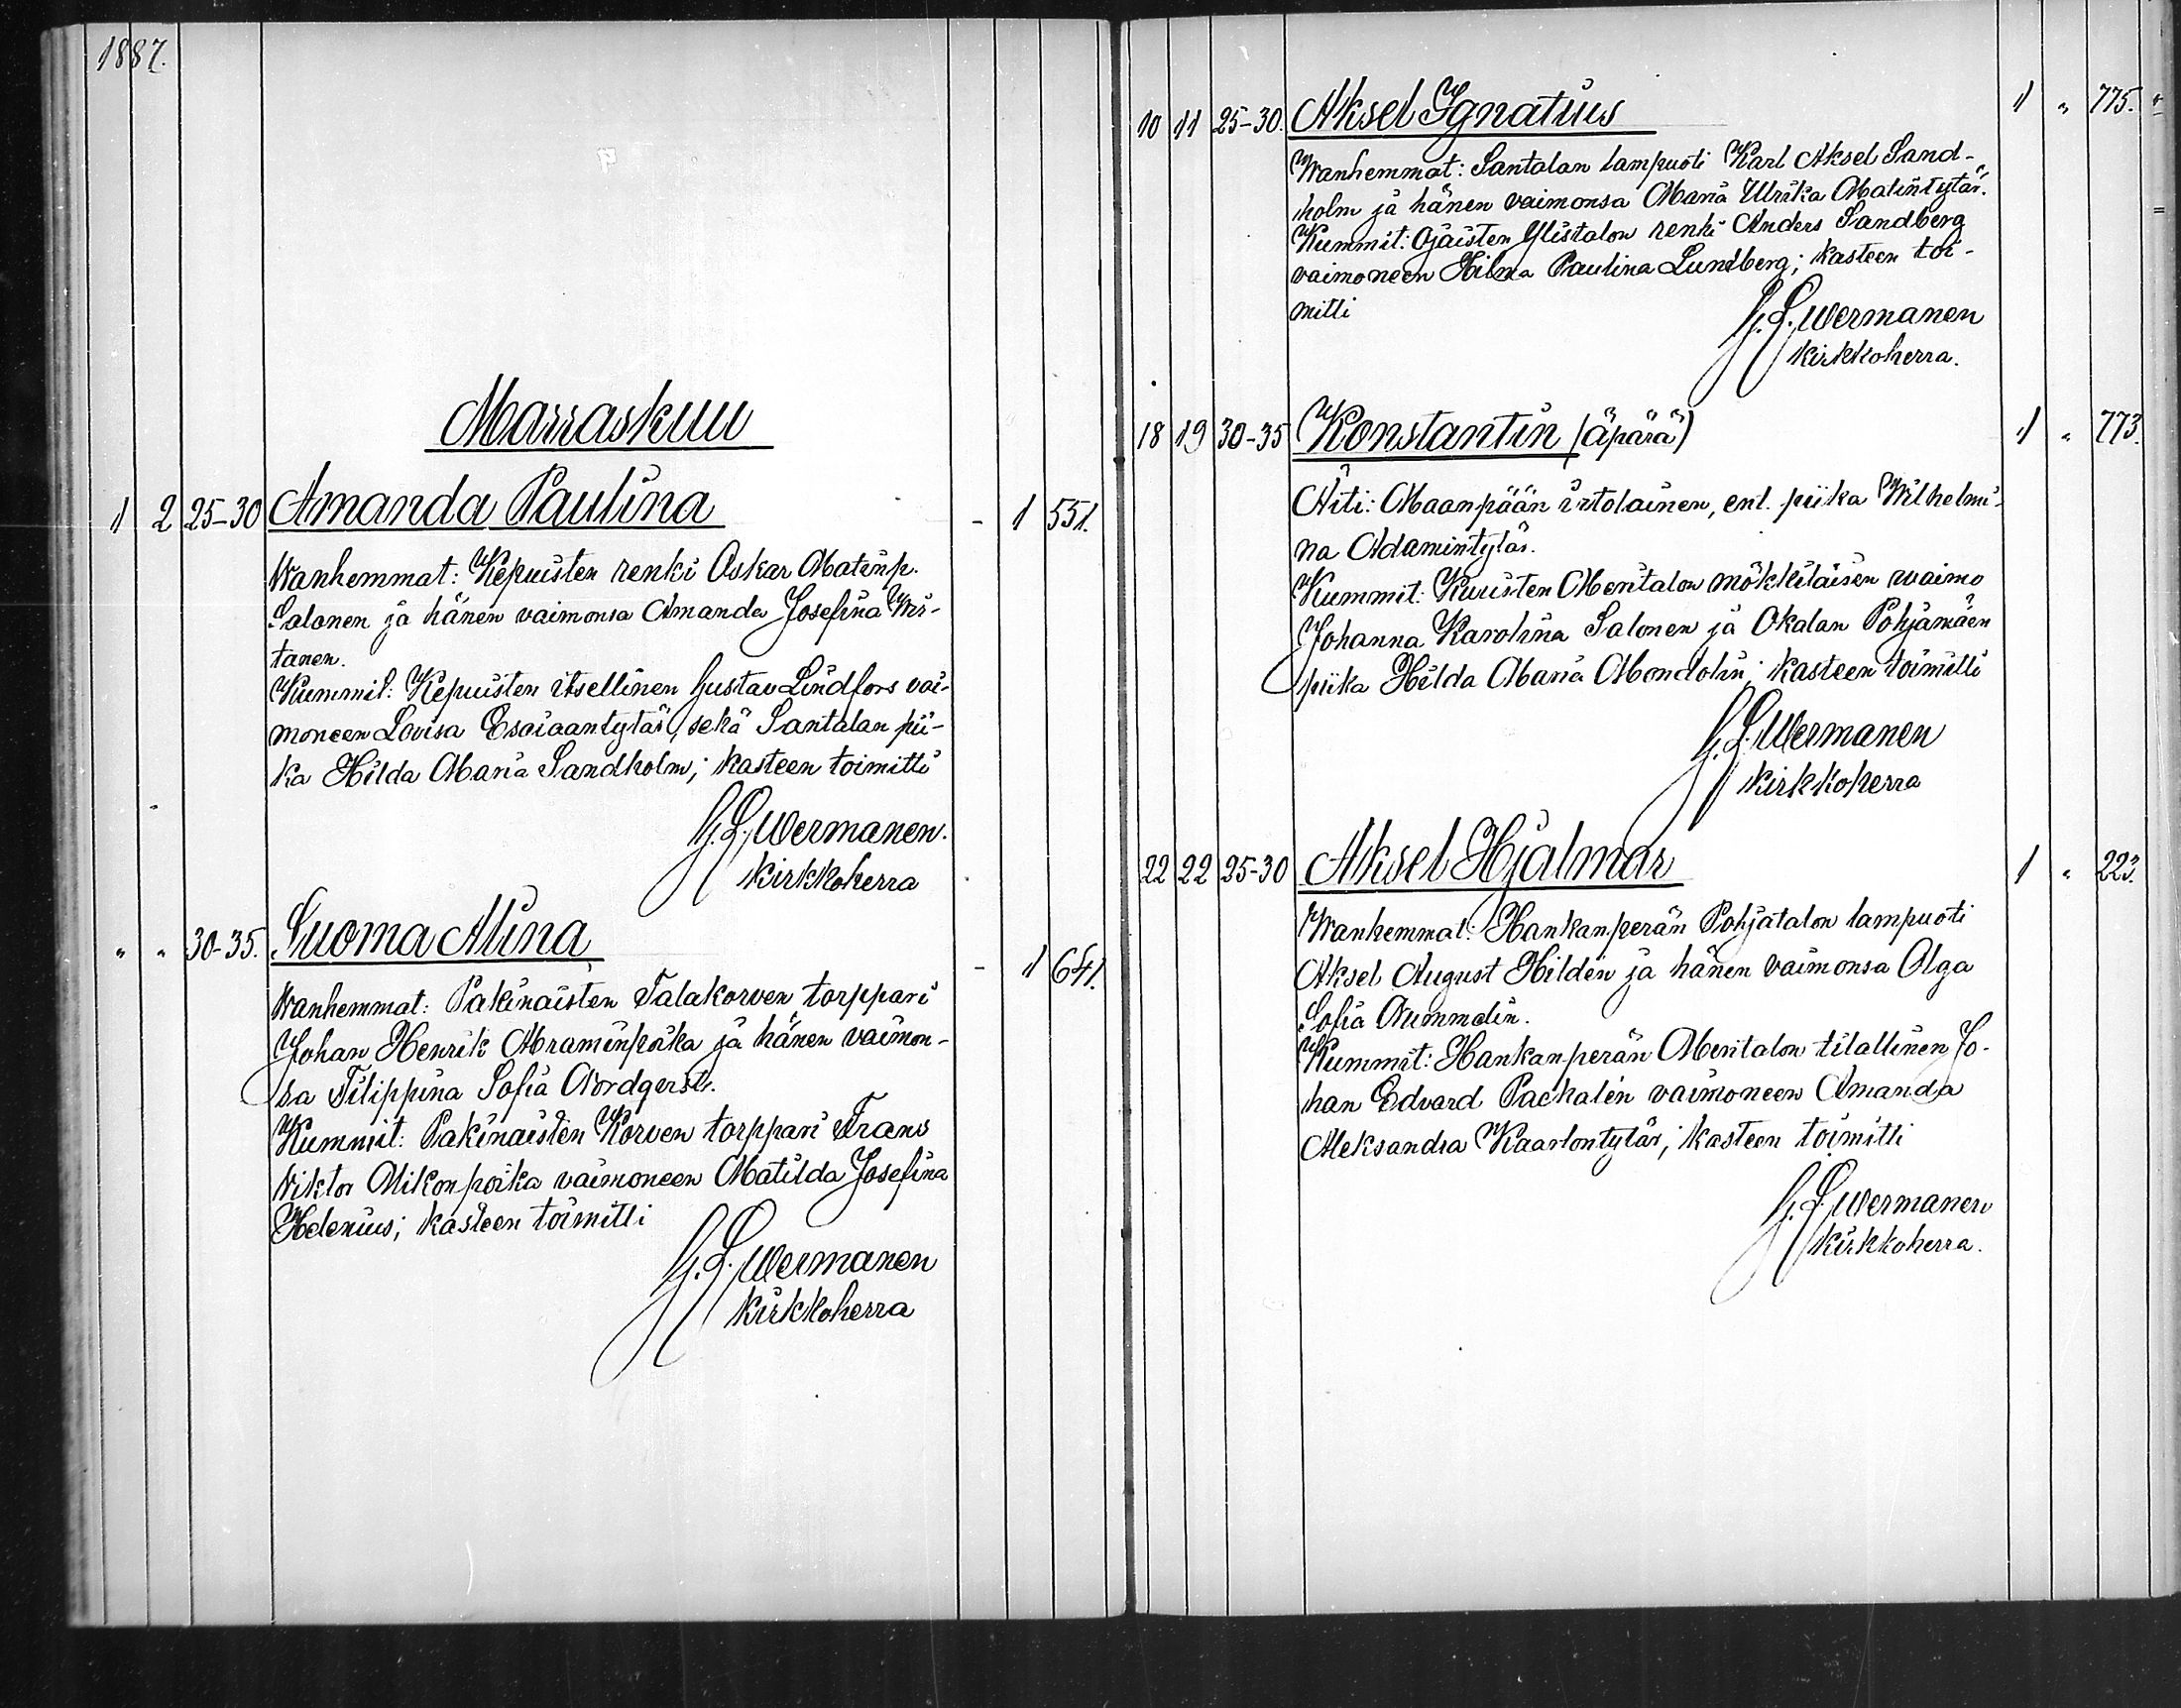 1887.
Marraskuu
1 2 25-30 Amanda Paulina - 1 551.
Wanhemmat: Kepuisten renki Oskar Matinp.
Salonen ja hänen vaimonsa Amanda Josefina Wir-
tanen.
Kummit: Kepuisten itsellinen Gustav Lindfors vai-
moneen Lovisa Esaiaantytär, sekä Santalan pii-
ka Hilda Maria Sandholm; kasteen toimitti
G. L. Wermanen.
kirkkoherra
" " 30-35. Suoma Alina - 1 641.
Wanhemmat: Pakinaisten Talakorven torppari
Johan Henrik Abraminpoika ja hänen vaimon-
sa Filippina Sofia Nordgerst.
Kummit: Pakinaisten Korven torppari Frans
Viktor Mikonpoika vaimoneen Matilda Josefina
Helenius; kasteen toimitti
G. L. Wermanen
kirkkoherra
10 11 25-30. Aksel Ignatius 1 " 775.
Wanhemmat: Santalan lampuoti Karl Aksel Sand-
holm ja hänen vaimonsa Maria Ulrika Matintytär.
Kummit: Ojaisten Ylistalon renki Anders Sandberg
vaimoneen Hilma Paulina Lundberg; kasteen toi-
mitti
G. L. Wermanen
kirkkoherra.
18 19 30-35 Konstantin (äpärä) 1 " 773.
Äiti: Maanpään irtolainen, ent. piika Wilhelmi-
na Adamintytär.
Kummit: Kuuisten Meritalon mökkiläisen vaimo
Johanna Karolina Salonen ja Okalan Pohjamäen
piika Hilda Maria Mondolin; kasteen toimitti
G. L. Wermanen
kirkkoherra
22 22 25-30 Aksel Hjalmar 1 " 223.
Wanhemmat: Hankanperän Pohjatalon lampuoti
Aksel August Hildén ja hänen vaimonsa Olga
Sofia Nummelin.
Kummit: Hankanperän Meritalon tilallinen Jo-
han Edvard Packalén vaimoneen Amanda
Aleksandra Kaarlontytär; kasteen toimitti
G. L. Wermanen
kirkkoherra.